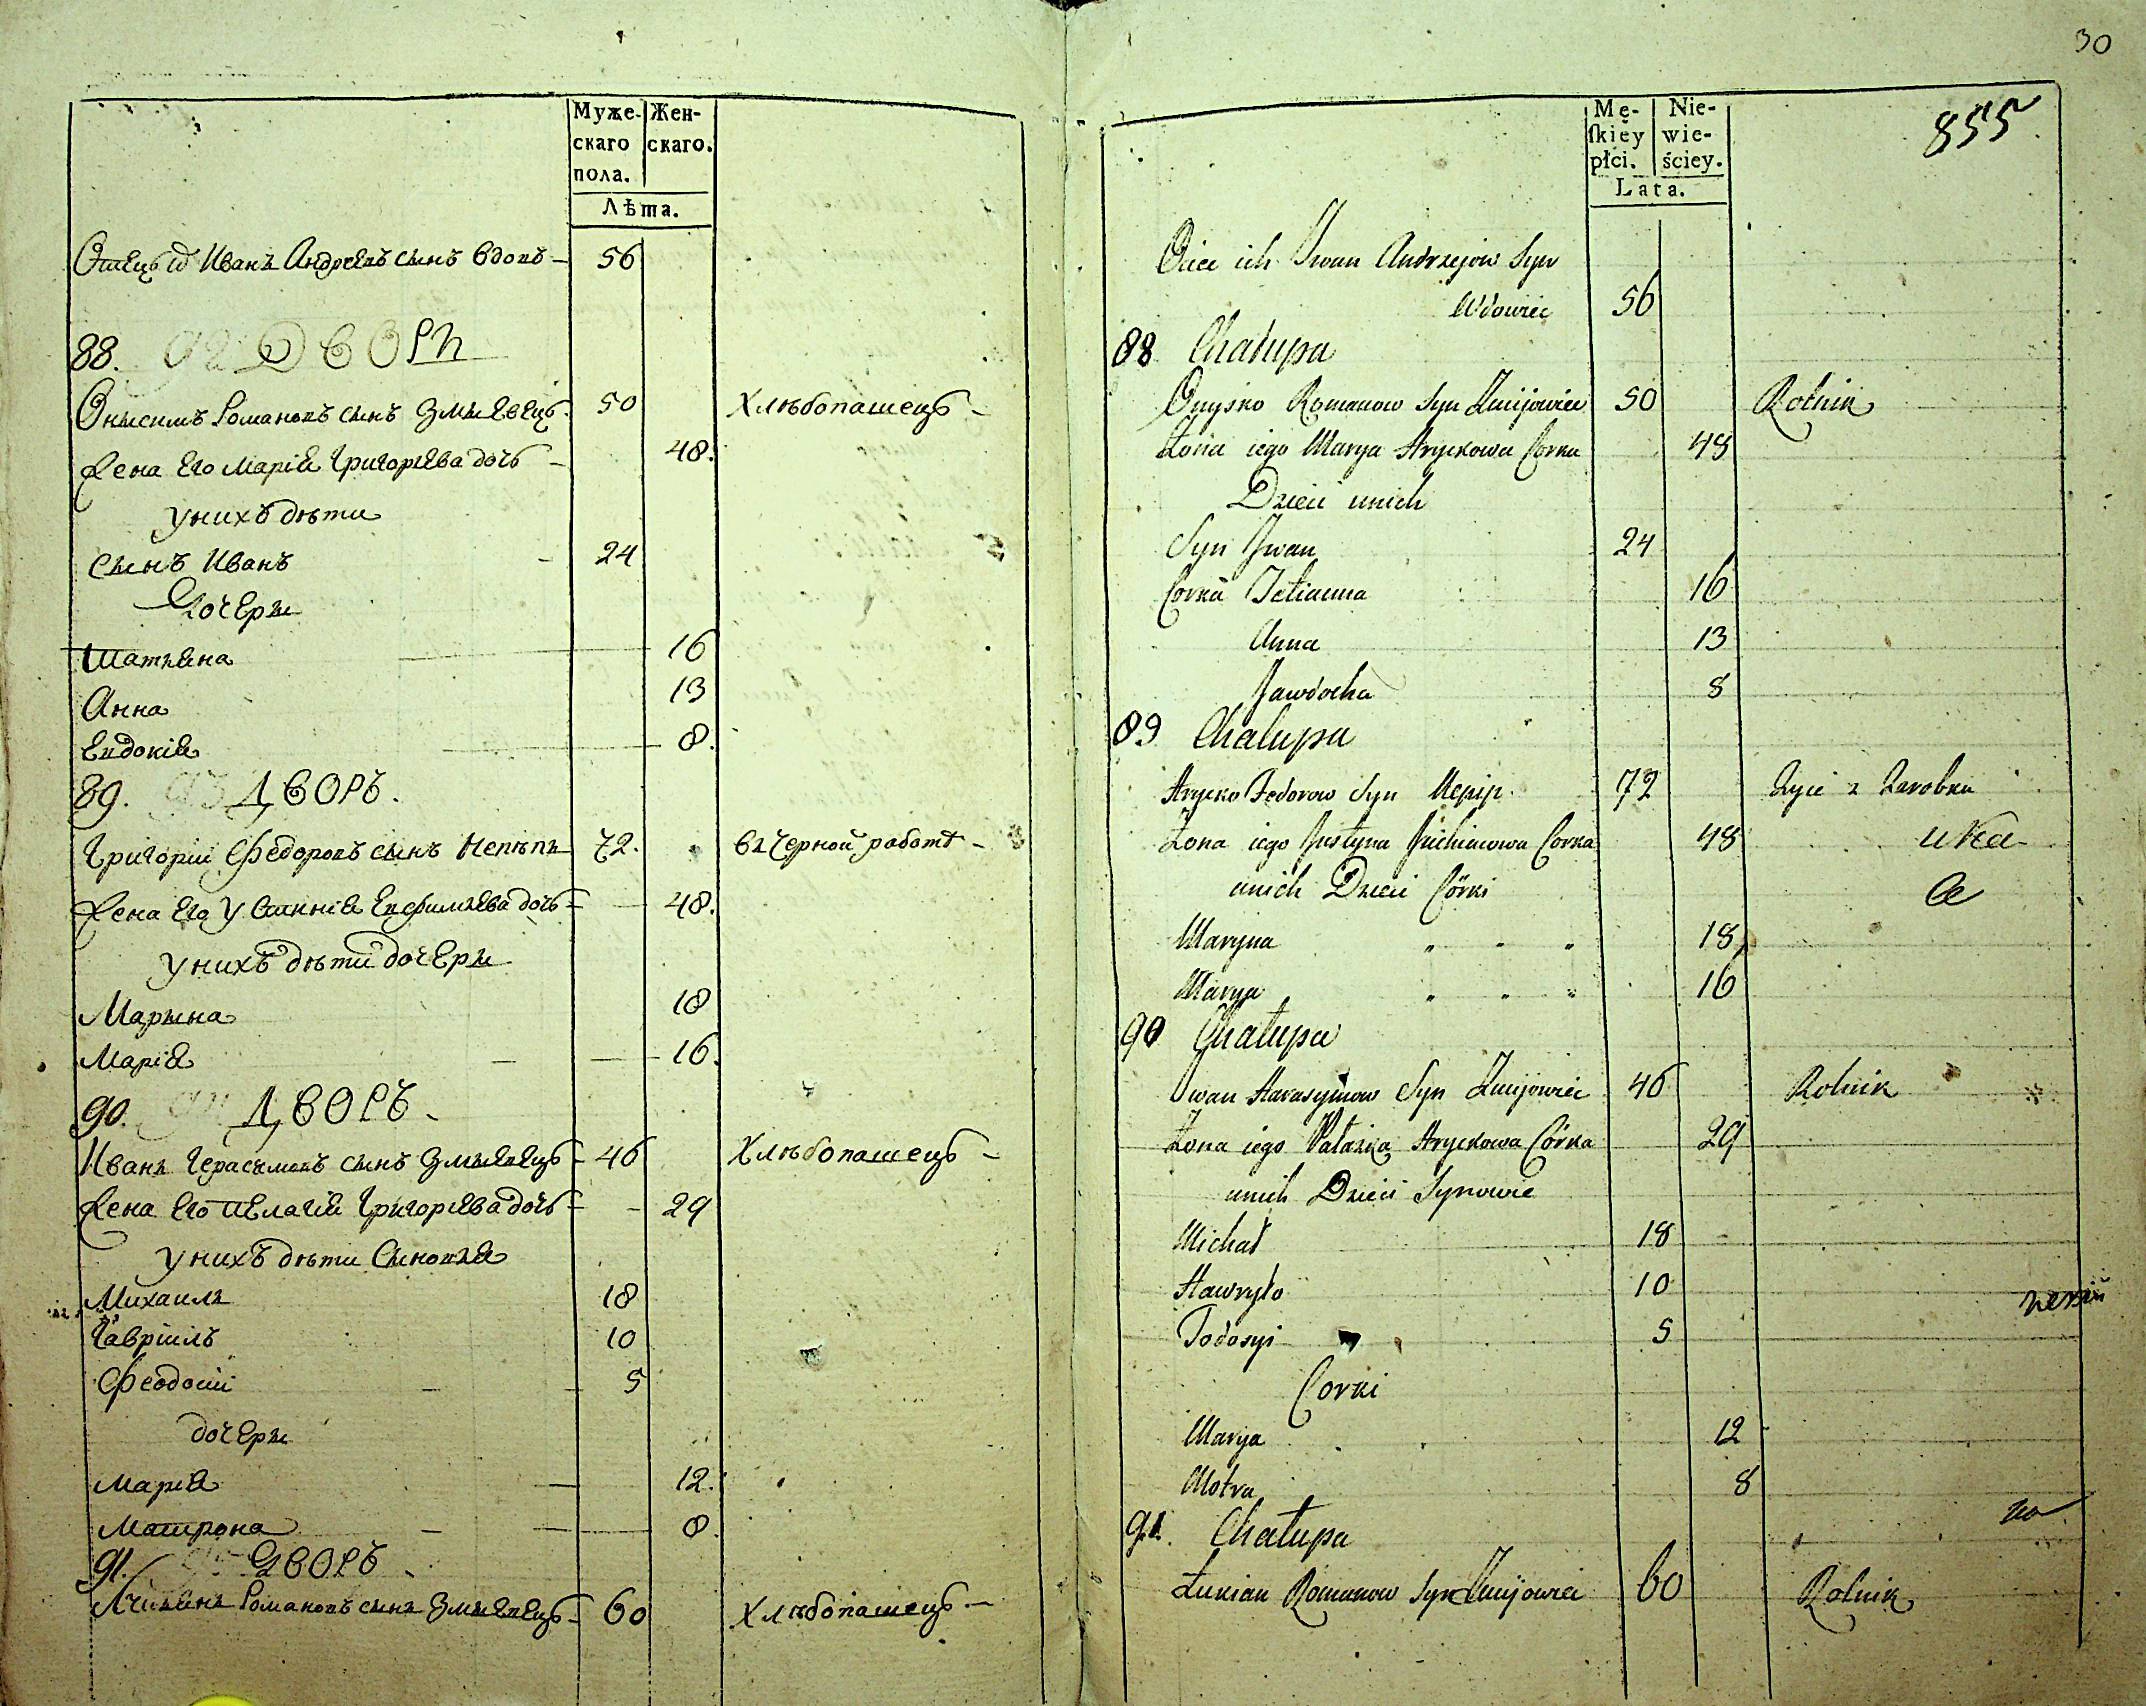 Муже-
скаго
пола.
Жен-
скаго.
Лѣта.
Отецъ Иванъ Андреевъ сынъ вдовъ – 56
88. 92 Дворъ
Онысимъ Романовъ сынъ Змыевецъ 50 Хлѣбопашецъ –
Жена его Марія Григорьева дочь – 48.
у нихъ дѣти
Сынъ Иванъ – 24
Дочеры
Татьяна 16
Анна 13
Евдокія 8.
89. 93 Дворъ.
Григорій Федоровъ сынъ Непѣпъ 72. въ черной работѣ –
Жена его Устинія Евфимьева дочь – 48.
у нихъ дѣти дочеры
Марына 18
Марія – 16.
90. 94 Дворъ –
Иванъ Герасимовъ сынъ Змыевецъ – 46 Хлѣбопашецъ –
Жена его Пелагія Григорьева дочь – 29
у нихъ дѣти Сыновья
Михаилъ 18
Гавріилъ 10
Феодосій – 5
дочеры
Марія – 12.
Матрона – 8.
91. 95 Дворъ –
Романовъ сынъ Змыевецъ – 60 Хлѣбопашецъ –
30
Mę-
skiey
płci.
Nie-
wie-
ściey.
Lata.
855
Ociec ich Iwan Andrzejow Syn
Wdowiec 56
88 Chałupa
Onyśko Romanow Syn Zmijowiec 50 Rolnik
Żona iego Marya Hryckowa Corka 48
Dzieci unich
Syn Iwan 24
Corka Tetianna 16
Anna 13
Jawdocha 8
89 Chałupa
Hrycko Fedorow Syn Nepip 72 Żyie z Zarobku
Żona iego Justyna Juchimowa Corka 48
unich Dzieci Córki
Maryna " " " 18
Marya " " " 16
90 Chałupa
Iwan Harasymow Syn Zmijowiec 46 Rolnik
Żona iego Pałazka Hryckowa Córka 29
unich Dzieci Synowie
Michał 18
Hawryło 10
Todosyi 5
Corki
Marya 12
Motra 8
91. Chałupa
Łukian Romanow Syn Zmijowiec 60 Rolnik